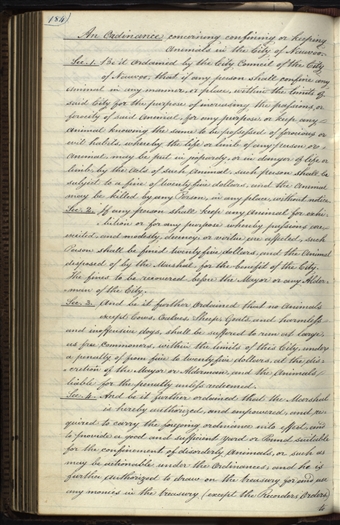 184
An Ordinance concerning confining or keeping
Animals in the City of Nauvoo.
Sec. 1. Be it ordained by the City Council of the City
of Nauvoo, that if any person shall confine any
animal in any manner, or place, within the limits of
said City for the purpose of increasing the passions or
ferocity of said Animal for any purpose or keep any
Animal knowing the same to be possessed of ferocious or
evil habits, whereby the life or limb of any person or
Animal may be put in jeopardy, or in danger of life or
limb, by the acts of such Animal, such person shall be
subject to a fine of twenty five dollars, and the Animal
may be killed by any Person, in any place, without
Sec. 2. If any person shall keep any Animal for exhi-
-bition or for any purpose whereby passions are
excited, and modesty, decency or virtue are affected, such
Person shall be fined twenty five dollars, and the Animal
disposed of by the Marshal for the benefit of the City.
The fines to be recovered before the Mayor or any Alder-
-man of the City.
Sec. 3. And be it further ordained that no Animals
except Cows, Calves, Sheep, Goats, and harmless
and inoffensive dogs, shall be suffered to run at large
as free commoners, within the limits of this City, under
a penalty of from five to twenty five dollars, at the dis-
-cretion of the Mayor or Alderman, and the Animals
liable for the penalty unless redeemed.
Sec. 4. And be it further ordained that the Marshal
is hereby authorized, and empowered, and re-
quired to carry the foregoing ordinance into effect, and
to provide a good and sufficient yard or Pound suitable
for the confinement of disorderly Animals, or such as
may be actionable under the Ordinances; and he is
further Authorized to draw on the treasury for
any moneys in the treasury (except the Recorders Orders)
to